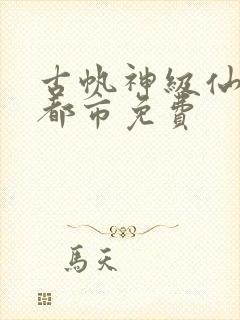 古帆神級仙
都市免費
馬天